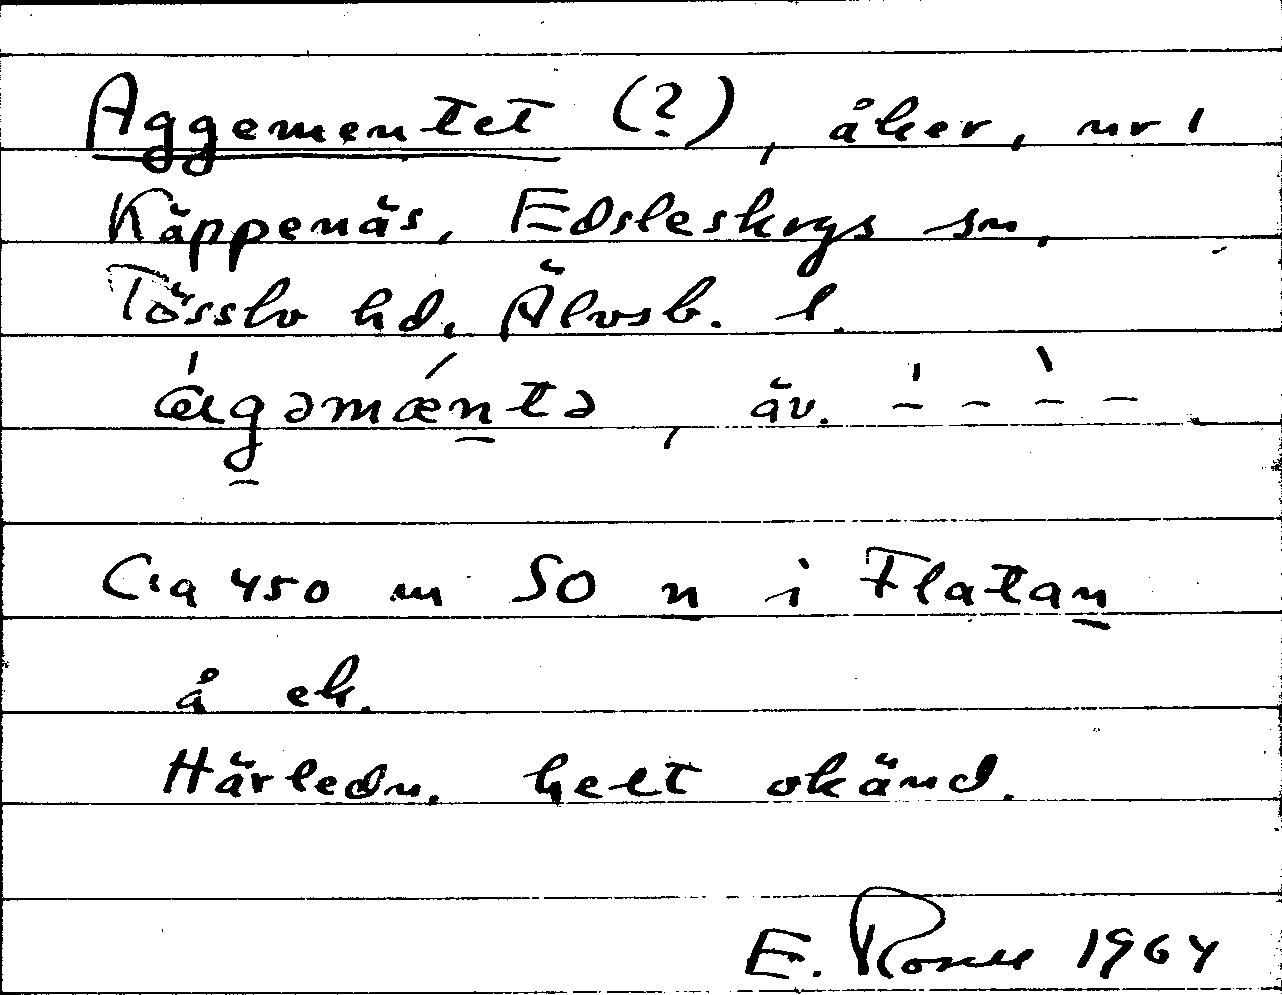 Aggementet (?), åker, nr 1
Käppenäs, Edsleskogs sn,
Tössbo hd, Älvsb. l.
ág̲əmǽn̲tə, äv. – – – –
Ca 450 m SO n i Flatan
å ek.
Härledn. helt okänd.
E. 1964